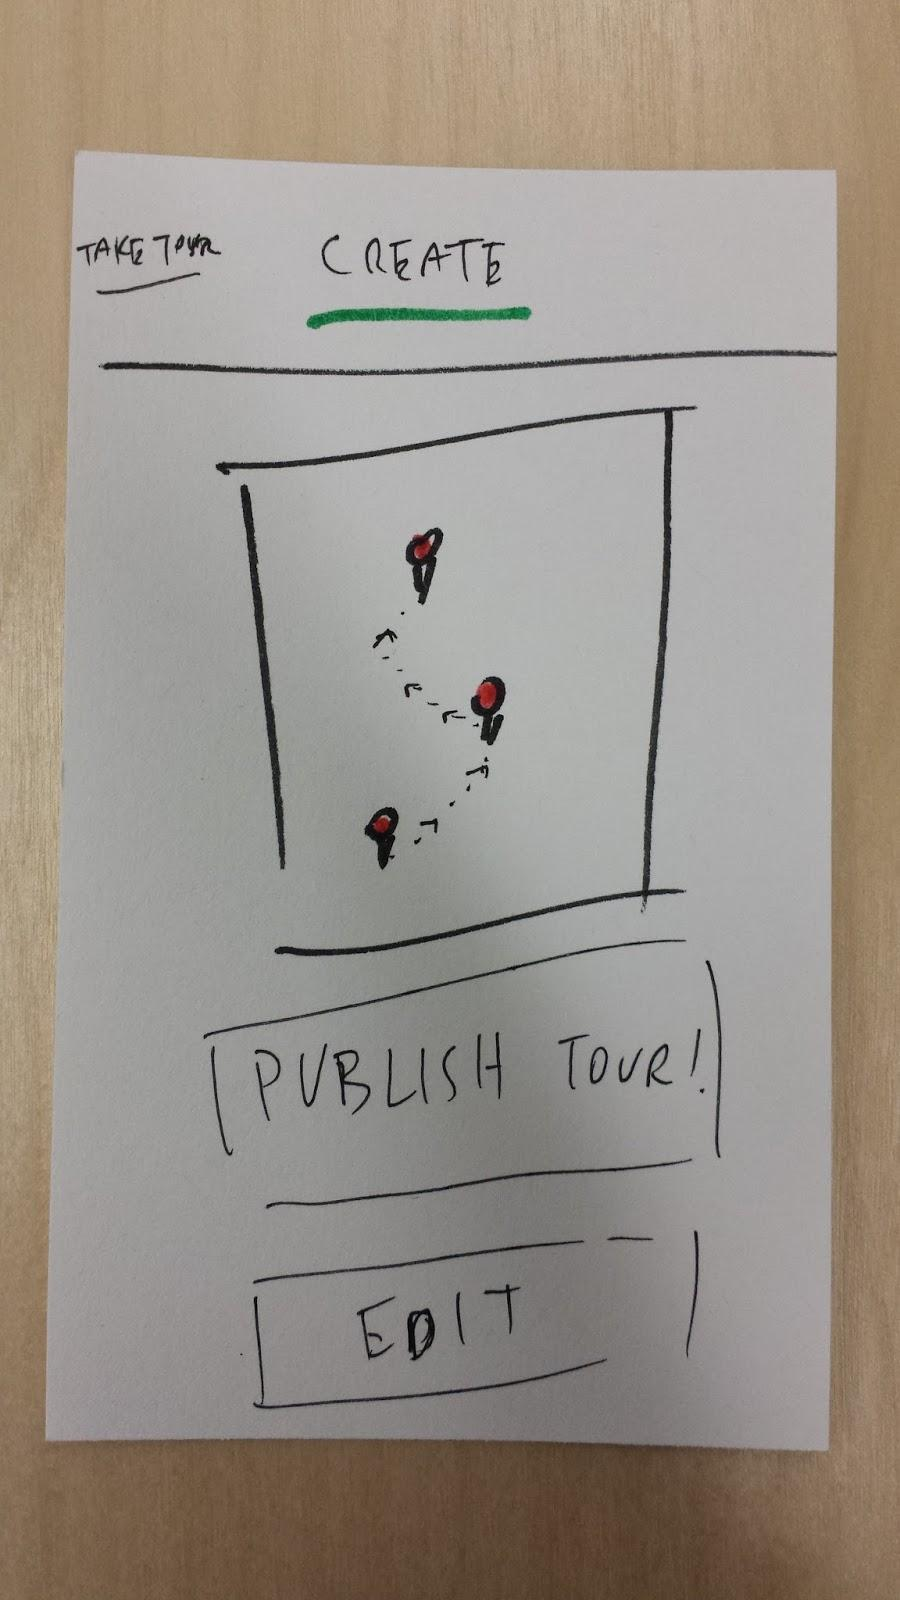 TAKE TOUR CREATE
PUBLISH TOUR!
EDIT